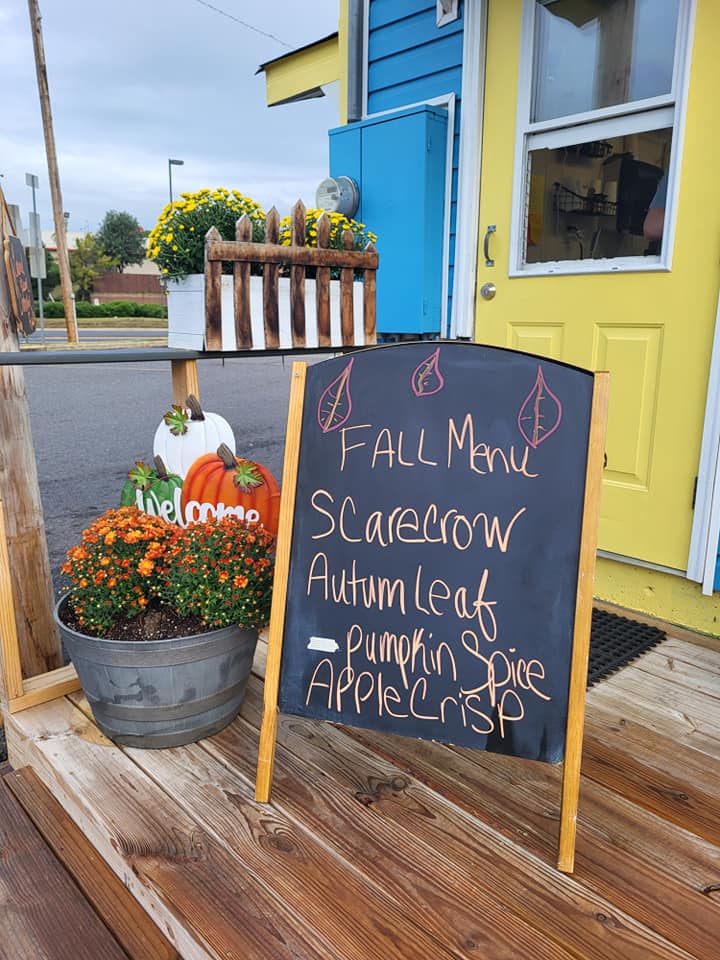 Welcome
FALL Menu
Scarecrow
Autum Leaf
Pumpkin Spice
Apple Crisp